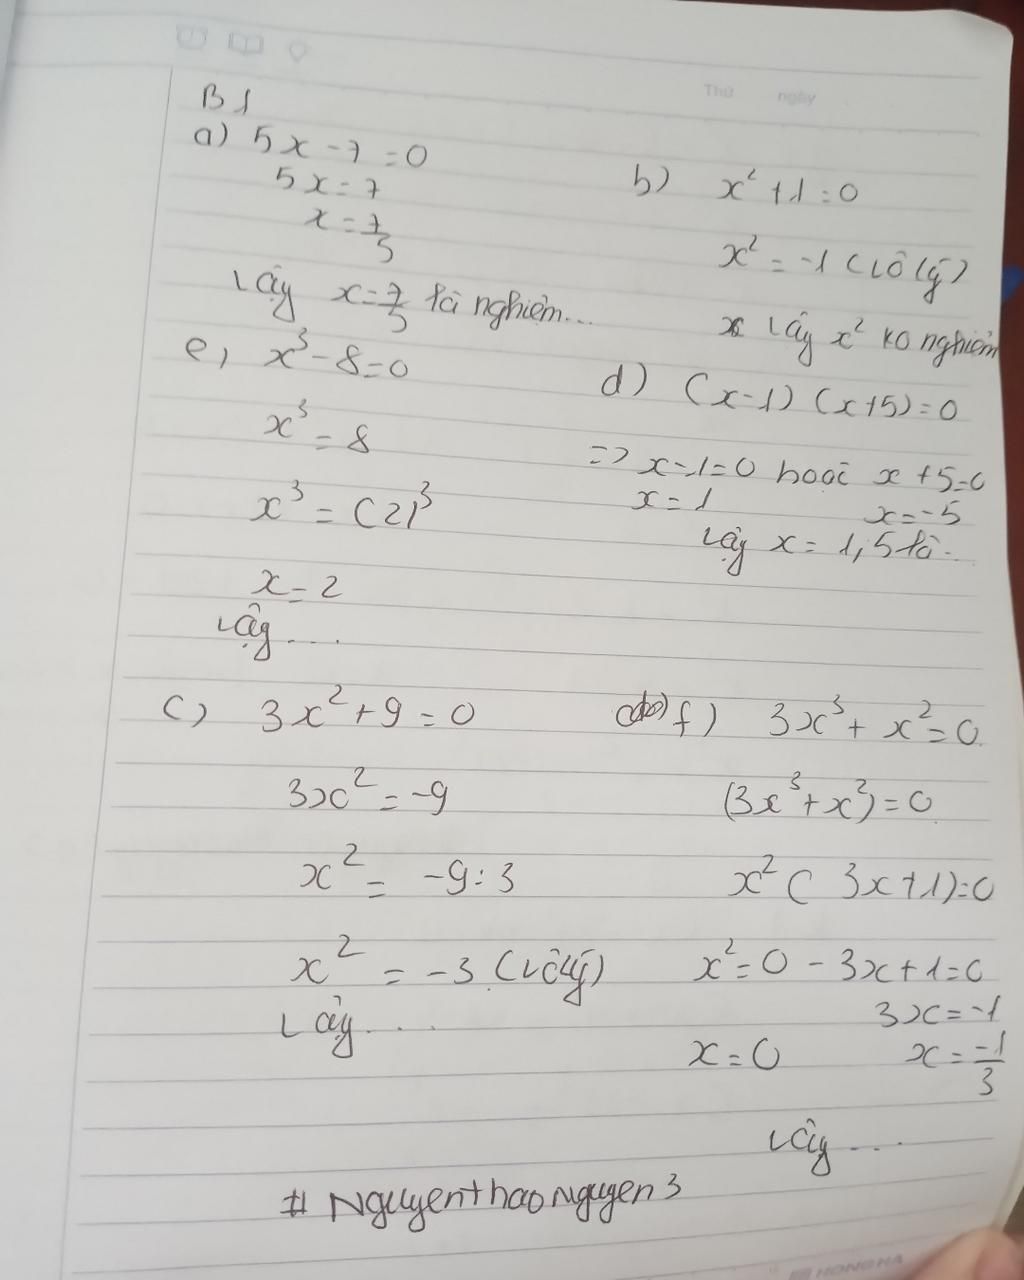 Thứ ngày
B1
a) 5x - 7 = 0
5x = 7
x = 7/5
Vậy x = 7/5 là nghiệm...
b) x² + 1 = 0
x² = -1 (vô lý)
Vậy x² ko nghiệm
e, x³ - 8 = 0
x³ = 8
x³ = (2)³
x = 2
Vậy ....
d) (x-1) (x+5) = 0
=> x-1=0 hoặc x+5=0
x = 1 x = -5
Vậy x = 1,5 là...
c) 3x² + 9 = 0
3x² = -9
x² = -9:3
x² = -3 (vô lý)
Vậy ....
f) 3x³ + x² = 0
(3x³ + x²) = 0
x² (3x+1) = 0
x² = 0 - 3x + 1 = 0
3x = -1
x = 0 x = -1/3
Vậy ...
# Nguyenthaonguyen3
HONG HA